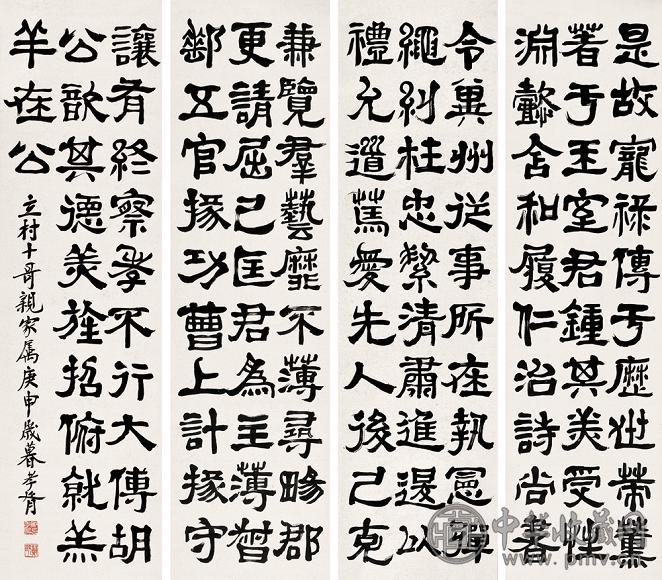 是故寵祿傳于歷世策薰
著于王室君鍾其美受性
淵懿含和履仁治詩尚書
令冀州從事所在執憲彈
繩糾枉忠絜清肅進退以
禮允道篤愛先人後己克
兼覽羣藝靡不薄尋畼郡
更請屈己匡君為主薄督
郵五官掾功曹上計掾守
讓有終察孝不行大傅胡
公歆其德美旌招俯就羔
羊在公
立村十哥親家屬庚申歲暮孝胥